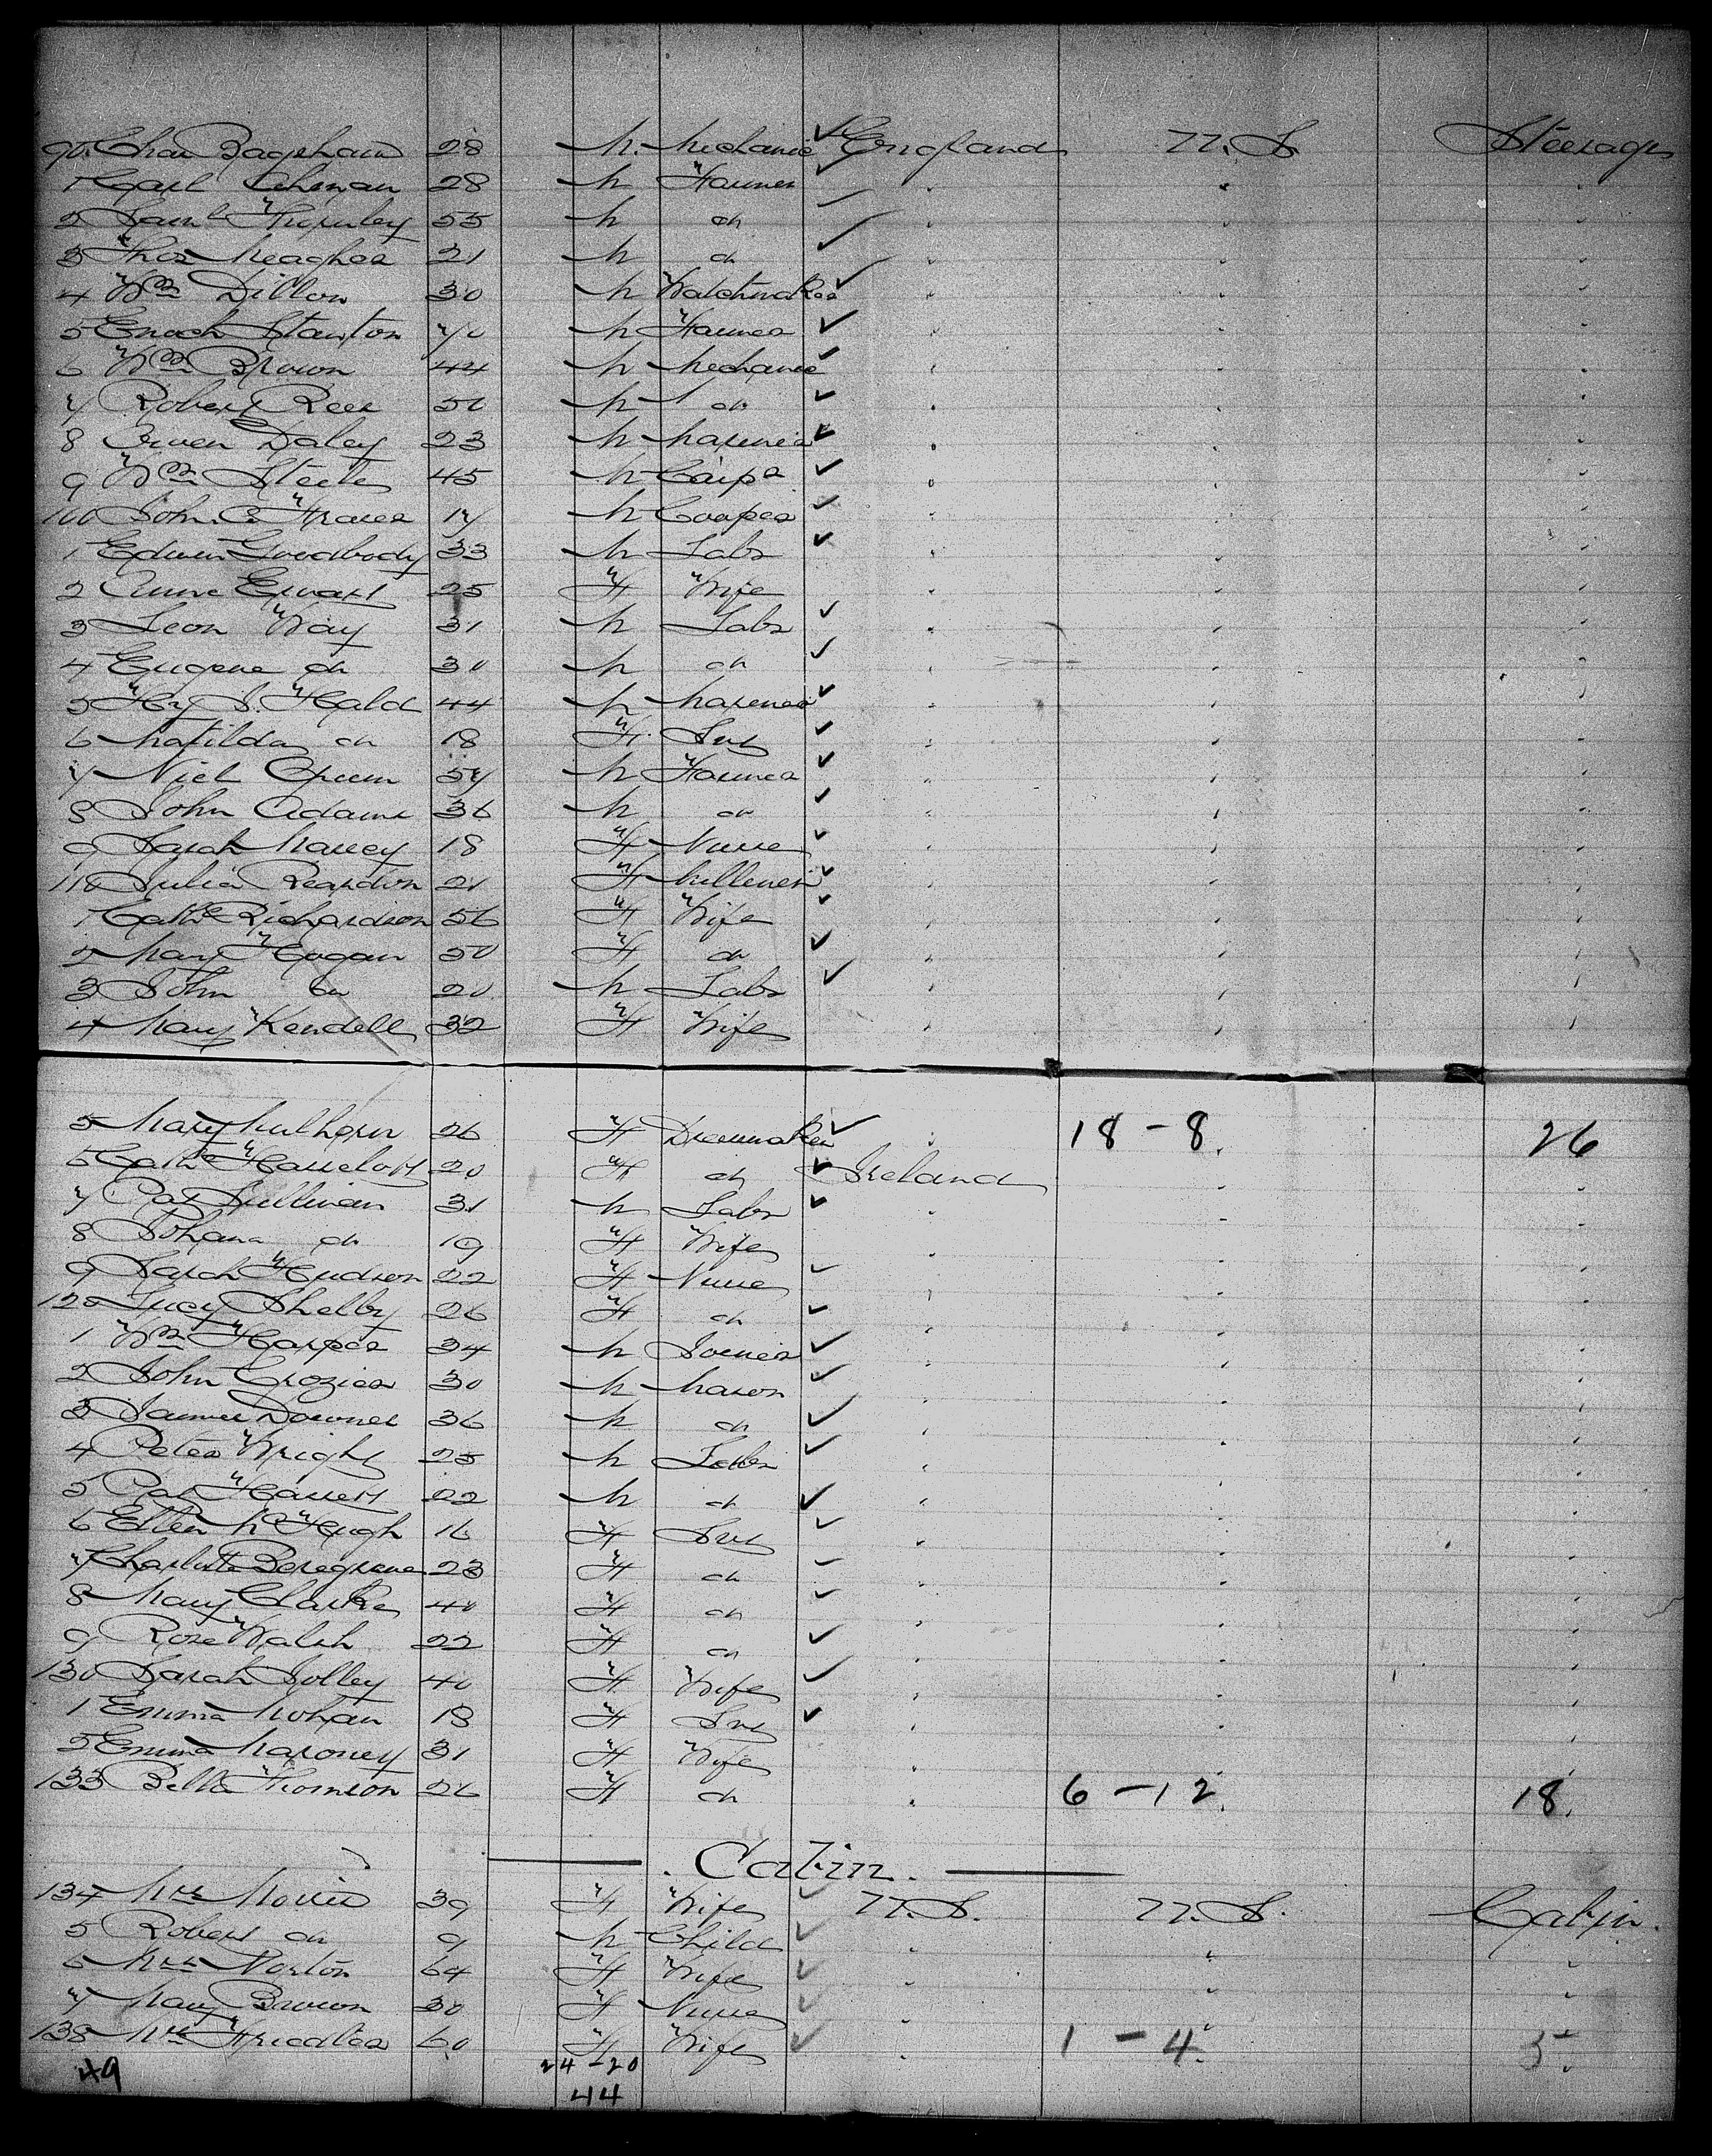 90. Chas Bagshaw 28 M. Mechanic ✓ England U.S. Steerage
1 Carl Lehman 28 M Farmer ✓ " " "
2 Saml Thornley 55 M do ✓ " " "
3 Thos Meagher 21 M do ✓ " " "
4 Wm Dillon 30 M Watchmaker ✓ " " "
5 Enoch Stanton 70 M Farmer ✓ " " "
6 Wm Brown 44 M Mechanic ✓ " " "
7 Robert Rees 50 M do ✓ " " "
8 Owen Daley 23 M Mariner ✓ " " "
9 Wm Steele 45 M Carpr ✓ " " "
100 John C. Fraser 17 M Cooper ✓ " " "
1 Edwin Goodbody 33 M Labr ✓ " " "
2 Anne Ewart 25 F Wife " " "
3 Leon Way 31 M Labr ✓ " " "
4 Eugene do 30 M do ✓ " " "
5 Hy J. Hald 44 M Mariner ✓ " " "
6 Matilda do 18 F. Svt ✓ " " "
7 Niel Green 57 M Farmer ✓ " " "
8 John Adams 36 M do ✓ " " "
9 Sarah Massey 18 F Nurse ✓ " " "
110 Julia Reardon 21 F Milliner ✓ " " "
1 Cathe Richardson 56 F Wife ✓ " " "
2 Mary Hogan 50 F do ✓ " " "
3 John do 20 M Labr ✓ " " "
4 Mary Kendell 32 F Wife " " "
5 Mary Mulhern 26 F Dressmaker ✓ " 18 - 8 26
6 Cathe 20 F do ✓ Ireland " "
7 Pat Sullivan 31 M Labr ✓ " " "
8 Johana do 19 F Wife " " "
9 Sarah Hudson 22 F Nurse ✓ " " "
120 Lucy Shelby 26 F do ✓ " " "
1 Wm Harper 34 M Joiner ✓ " " "
2 John Crozier 30 M Mason ✓ " " "
3 James Downes 36 M do ✓ " " "
4 Peter Wright 25 M Labr ✓ " " "
5 Pat Hassett 22 M do ✓ " " "
6 Ellen McHugh 16 F Svt ✓ " " "
7 Charlotte Peregrene 23 F do ✓ " " "
8 Mary Clarke 40 F do ✓ " " "
9 Rose Walsh 22 F do ✓ " " "
130 Sarah Jolley 40 F Wife ✓ " " "
1 Emma Mohan 18 F Svt ✓ " " "
2 Emma Maroney 31 F Wife " " "
133 Bella Thomson 26 F do " 6 - 12 18
Cabin.
134 Mrs Morris 39 F Wife ✓ U.S. U.S. Cabin.
5 Robert do 9 M Child ✓ " " "
6 Mrs Norton 64 F Wife ✓ " " "
7 Mary Brown 30 F Nurse ✓ " " "
138 Mrs 60 F Wife ✓ " 1 - 4 5
49 24 - 20
44